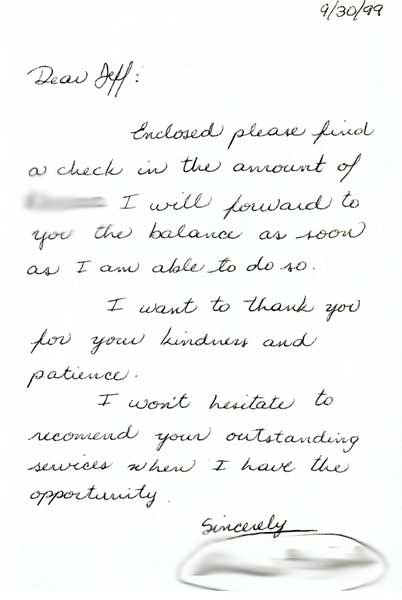 9/30/99
Dear Jeff:
Enclosed please find
a check in the amount of
I will forward to
you the balance as soon
as I am able to do so.
I want to thank you
for your kindness and
patience.
I won't hesitate to
recomend your outstanding
services when I have the
opportunity.
Sincerely